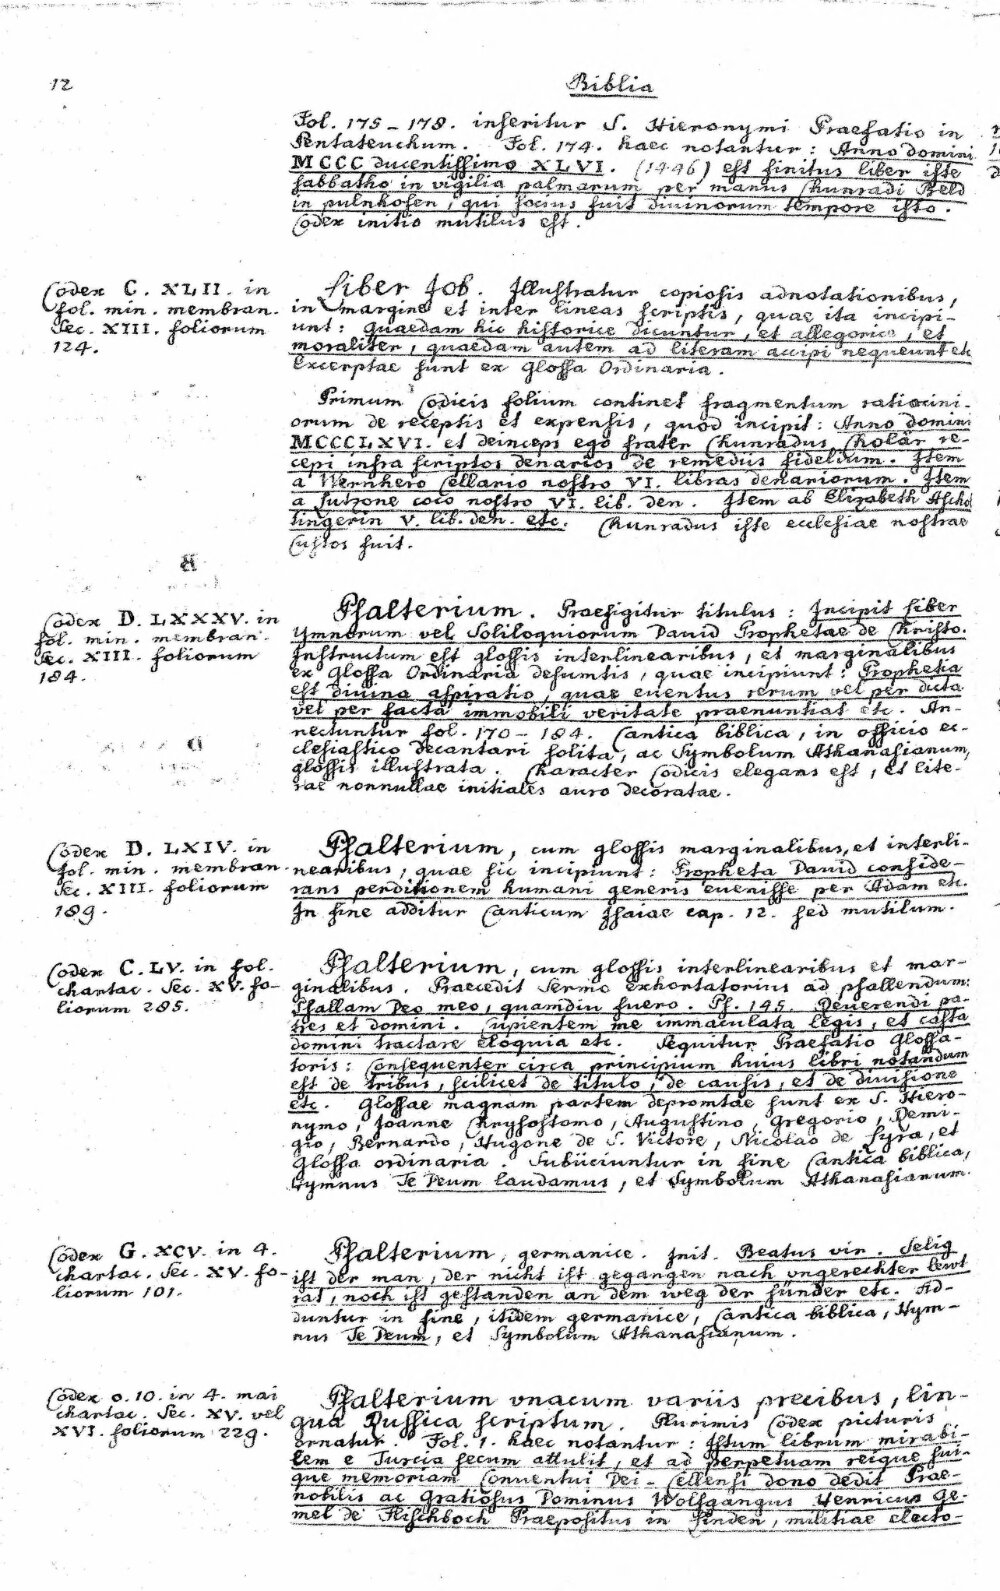 12
Biblia
Fol. 175 – 178. inseritur S. Hieronymi Praefatio in
Pentateuchum. Fol. 174. haec notantur: Anno domini
MCCC ducentissimo XLVI. (1446) est finitus liber iste
sabbatho in vigilia palmarum per manus Chunradi Held
in pulnhofen, qui socius fuit divinorum tempore isto.
Codex initio mutilus est.
Codex C. XLII. in
fol. min. membran.
Sec. XIII. foliorum
124.
Liber Job. Illustratur copiosis adnotationibus,
in margine et inter lineas scriptis, quae ita incipi-
unt: quaedam hic historice dicuntur, et allegorice, et
moraliter, quaedam autem ad literam accipi nequeunt etc
Excerptae sunt ex Glossa Ordinaria.
Primum Codicis folium continet fragmentum ratiocini-
orum de receptis et expensis, quod incipit: Anno domini
MCCCLXVI. et deinceps ego frater Chunradus Cholär re-
cepi infra scriptos denarios de remediis fidelium. Item
a Wernhero Cellario nostro VI. libras denariorum. Item
a Lutzone coco nostro VI. lib. den. Item ab Elizabeth Ascho
tingerin V. lib. den. etc. Chunradus iste ecclesiae nostrae
Custos fuit.
Codex D. LXXXV. in
fol. min. membran.
Sec. XIII. foliorum
184.
Psalterium. Praefigitur titulus: Incipit Liber
Ymnorum vel Soliloquiorum David Prophetae de Christo.
Instructum est glossis interlinearibus, et marginalibus
ex Glossa Ordinaria desumtis, quae incipiunt: Prophetia
est divina aspiratio, quae eventus rerum vel per dicta
vel per facta immobili veritate praenuntiat etc. An-
nectuntur fol. 170 – 184. Cantica biblica, in officio ec-
clesiastico decantari solita, ac Symbolum Athanasianum,
glossis illustrata. Character Codicis elegans est, et lite-
rae nonnullae initiales auro decoratae.
Codex D. LXIV. in
fol. min. membran.
Sec. XIII. foliorum
189.
Psalterium, cum glossis marginalibus, et interli-
nearibus, quae sic incipiunt: Propheta David conside-
rans perditionem humani generis evenisse per Adam etc.
In fine additur Canticum Isaiae cap. 12. sed mutilum.
Codex C. LV. in fol.
chartac. Sec. XV. fo-
liorum 285.
Psalterium, cum glossis interlinearibus et mar-
ginalibus. Praecedit Sermo exhortatorius ad psallendum:
Psallam Deo meo, quamdiu fuero. Ps. 145. Reverendi pa-
tres et domini. Cupientem me immaculata legis, et casta
domini tractare eloquia etc. Sequitur Praefatio Glossa-
toris: Consequenter circa principium huius libri notandum
est de tribus, scilicet de titulo, de causis, et de divisione
etc. Glossae magnam partem depromtae sunt ex S. Hiero-
nymo, Joanne Chrysostomo, Augustino, Gregorio, Remi-
gio, Bernardo, Hugone de S. Victore, Nicolao de Lyra, et
Glossa ordinaria. Subiiciuntur in fine Cantica biblica,
Hymnus Te Deum laudamus, et Symbolum Athanasianum.
Codex G. XCV. in 4.
chartac. Sec. XV. fo-
liorum 101.
Psalterium, germanice. Init. Beatus vir. Selig
ist der man, der nicht ist gegangen nach ungerechter lewt
rat, noch ist gestanden an dem weg der sünder etc. Ad-
duntur in fine, itidem germanice, Cantica biblica, Hym-
nus Te Deum, et Symbolum Athanasianum.
Codex o. 10. in 4. mai
chartac. Sec. XV. vel
XVI. foliorum 229.
Psalterium vnacum variis precibus, lin-
gua Russica scriptum. Plurimis Codex picturis
ornatur. Fol. 1. haec notantur: Istum librum mirabi-
lem e Turcia secum attulit, et ad perpetuam reique sui-
que memoriam Conventui Dei-Cellensi dono dedit Prae-
nobilis ac Gratiosus Dominus Wolfgangus Henricus Ge-
mel de Flischboch Praepositus in Linden, militiae electo-